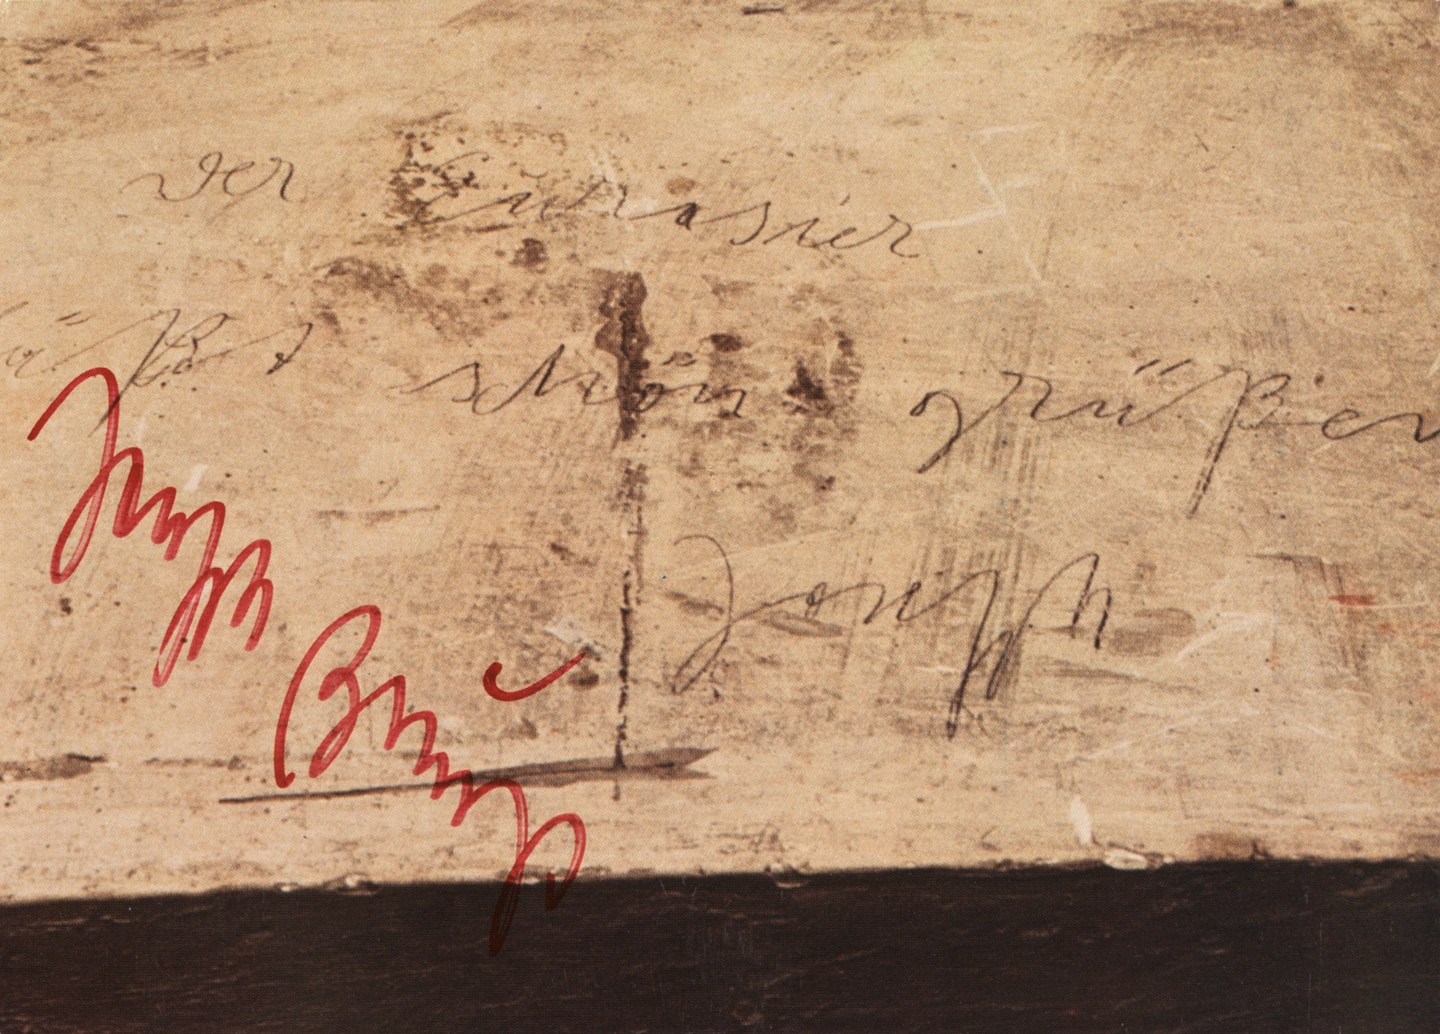 Der Eurasier
läßt schön grüßen
Joseph
Joseph Beuys